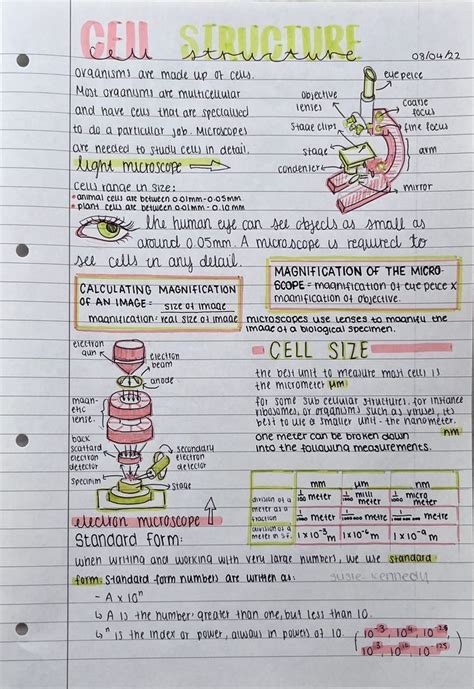 CELL STRUCTURE
cell structure
08/04/22
organisms are made up of cells.
Most organisms are multicellular
and have cells that are specialised
to do a particular job. Microscopes
are needed to study cells in detail.
light microscope
eye peice
objective
lenses
coarse
focus
stage clips
fine focus
stage
arm
condenser
mirror
cells range in size:
• animal cells are between 0.01mm-0.05mm.
• plant cells are between 0.01mm-0.10mm
the human eye can see objects as small as
around 0.05mm. A microscope is required to
see cells in any detail.
CALCULATING MAGNIFICATION
OF AN IMAGE = size of image
magnification: real size of image
MAGNIFICATION OF THE MICRO-
SCOPE = magnification of eye peice x
magnification of objective.
microscopes use lenses to magnify the
image of a biological specimen.
electron
gun
electron
beam
anode
magn-
etic
lense.
back
scattard
electron
detector
secondary
electron
detector
specimin
stage
electron microscope
CELL SIZE
the best unit to measure most cells is
the micrometer μm
for some sub cellular structures. for instance
ribosomes, or organisms such as viruses, its
best to use a smaller unit - the nanometer.
nm
one meter can be broken down
into the following measurements.
mm μm nm
division of a
meter as a
fraction
1/1000 meter 1/1000 milli meter 1/1000 micro meter
1/1000 meter 1/1000 000 metre metre
division of a
meter in s.f.
1x10⁻³m 1x10⁻⁶m 1x10⁻⁹m
Standard form:
when writing and working with very large numbers, we use standard
form. Standard form numbers are written as:
susie-kennedy
- A x 10ⁿ
↳ A is the number greater than one, but less than 10.
↳ ⁿ is the index or power, always in powers of 10.